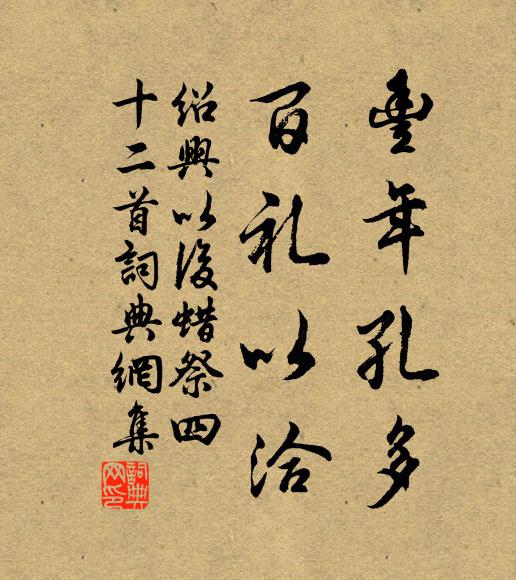 豐年孔多
百礼以洽
紹興以後蜡祭四
十二首詞典網集
詞典
网印